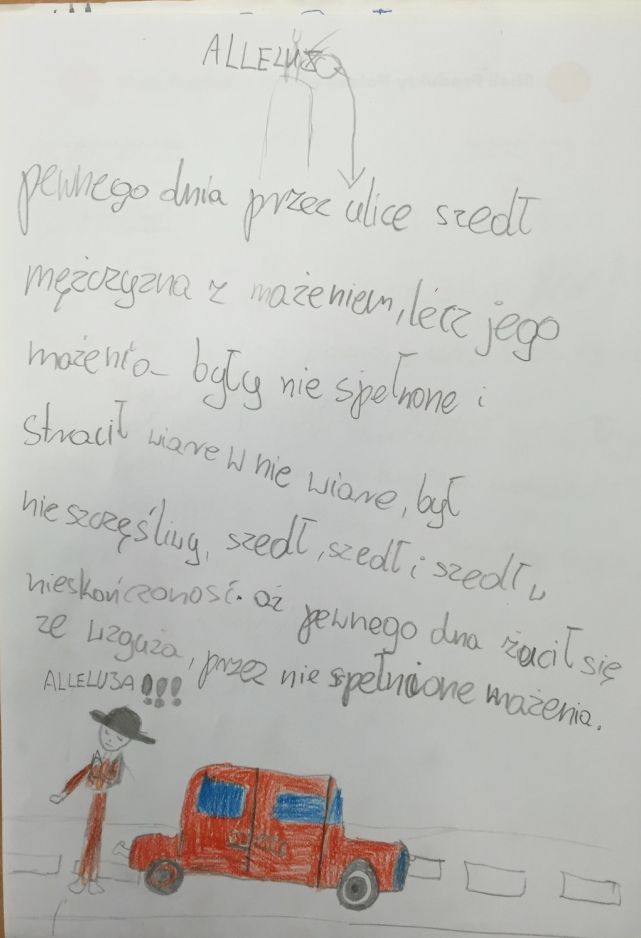 ALLELUJA
pewnego dnia przez ulice szedł
mężczyzna z mażeniem, lecz jego
mażenia były nie spełnone i
stracił wiare w nie wiare, był
nieszczęśliwy, szedł, szedł i szedł w
nieskończoność. aż pewnego dna żucił się
ze wzguża, przez nie spełnione mażenia.
ALLELUJA!!!